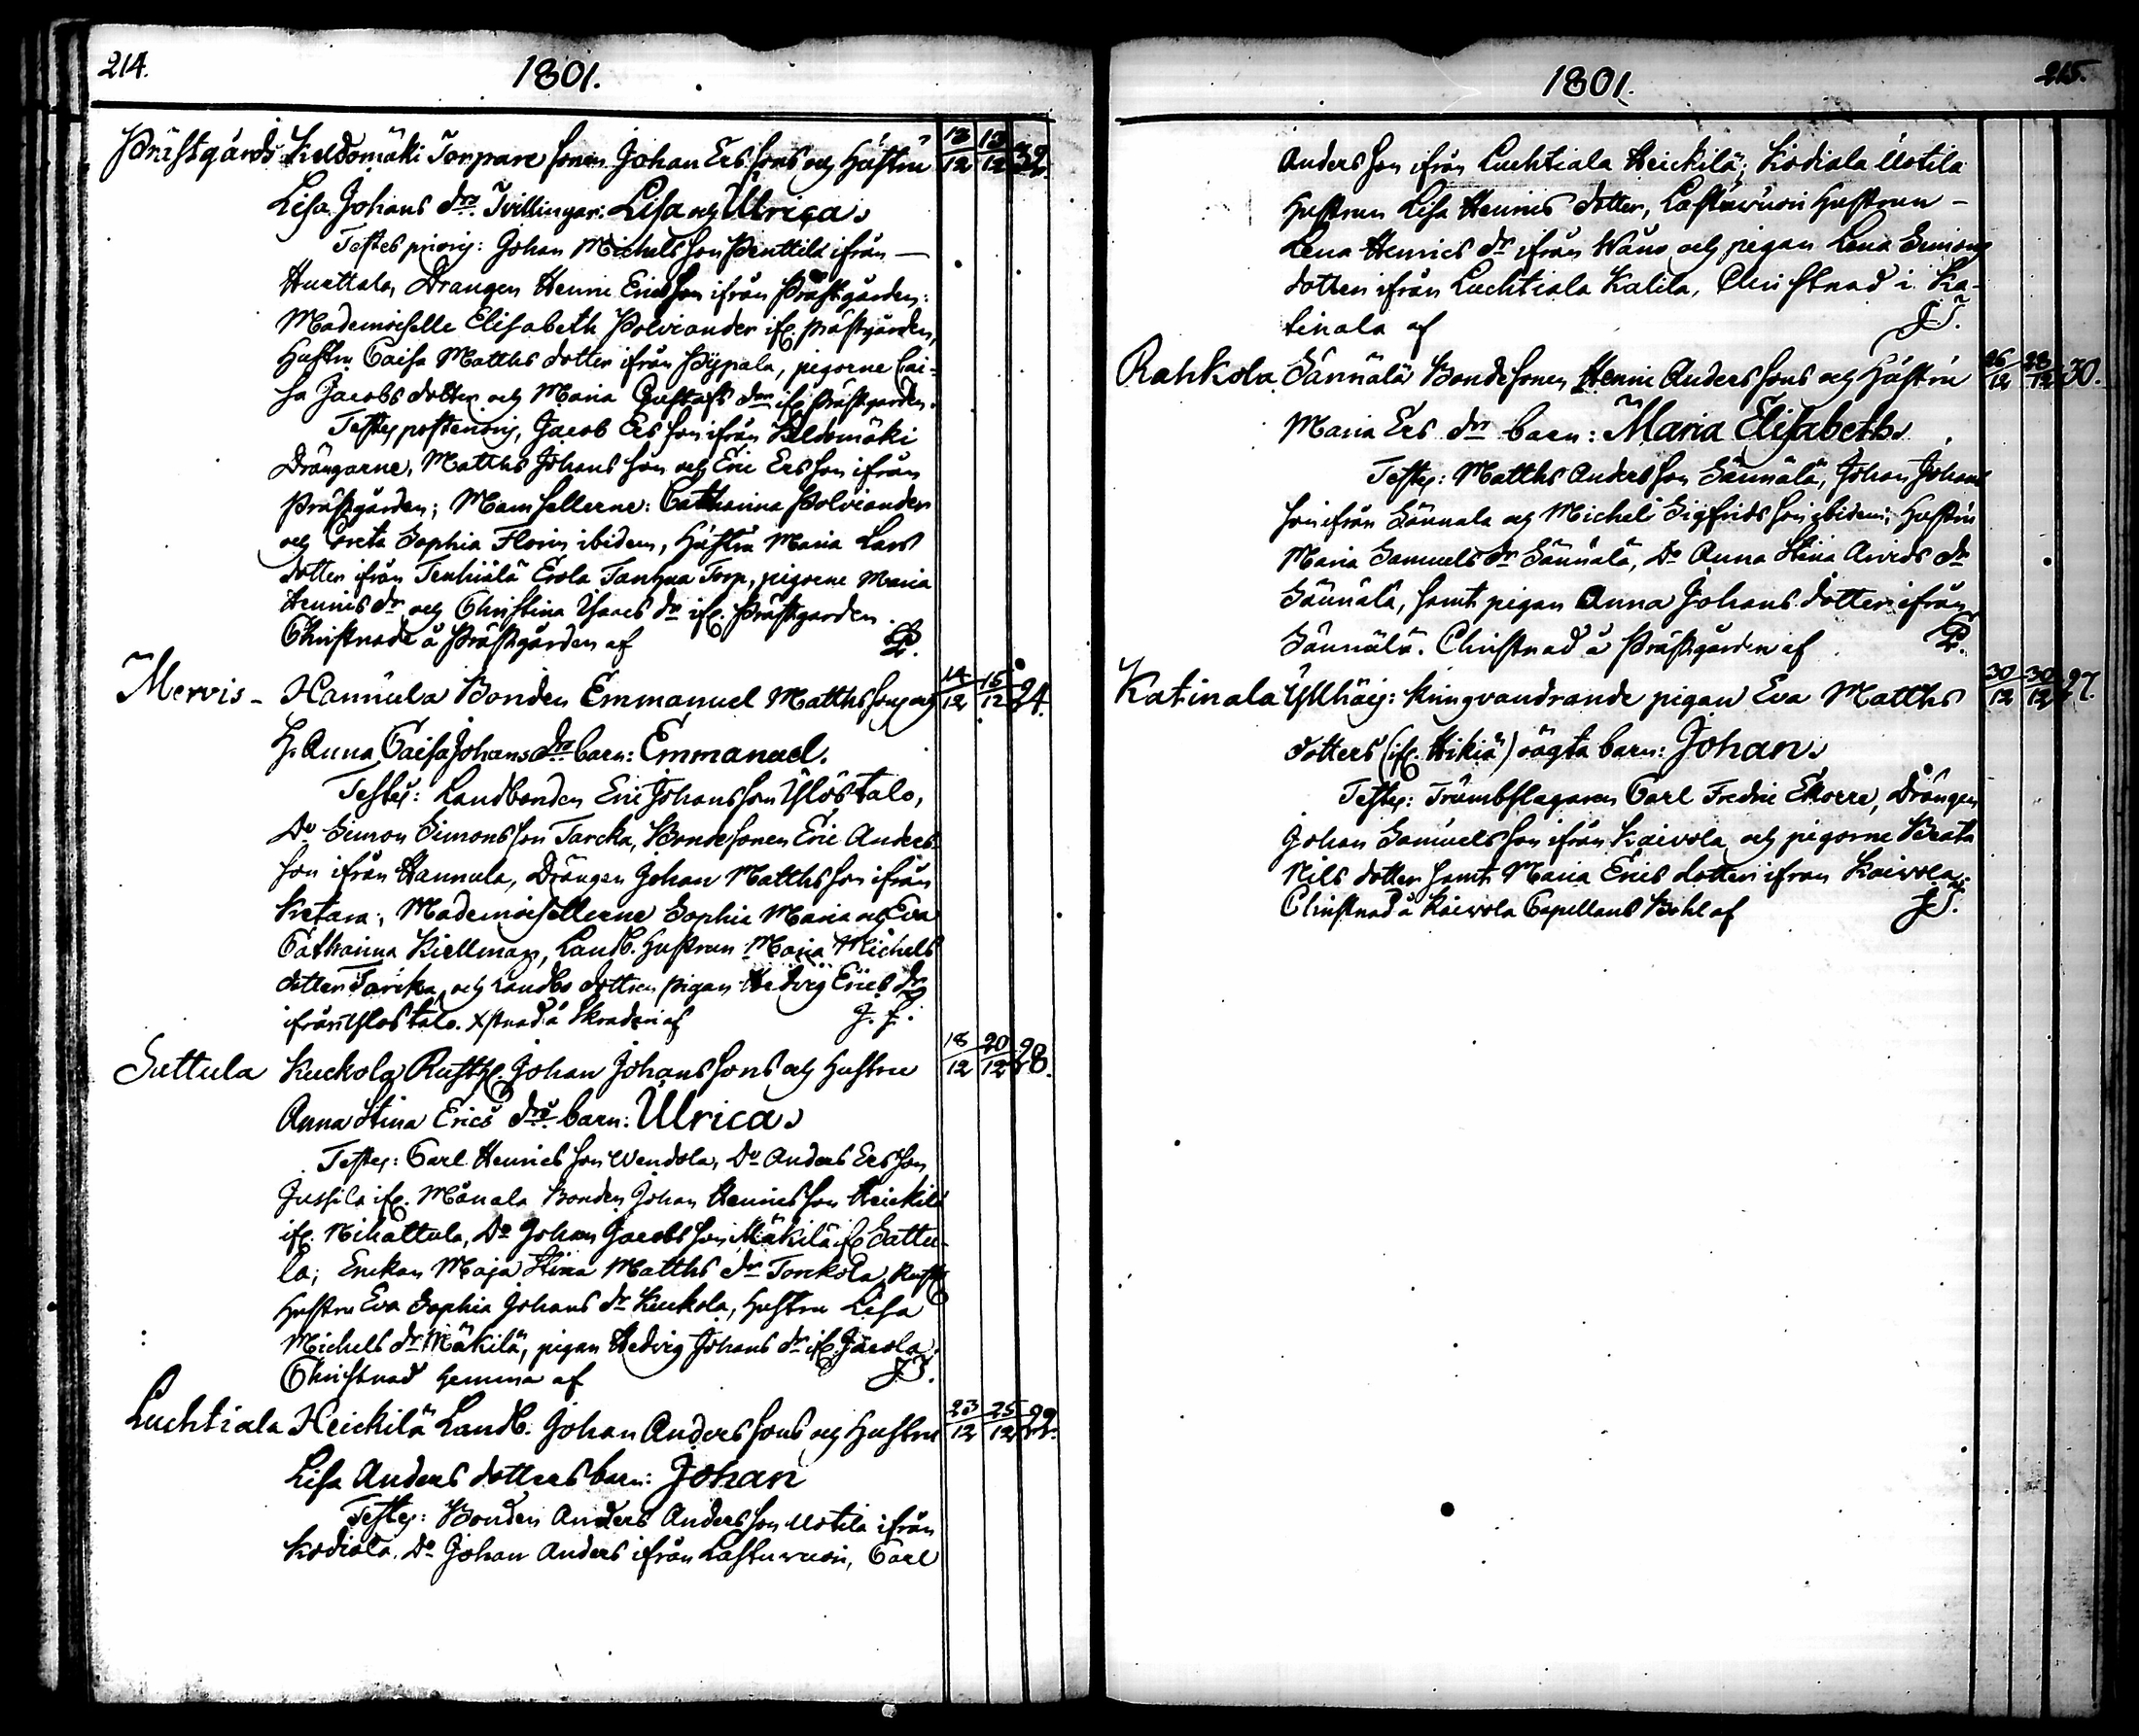 214.
1801.
Prästgårds Keldomäki Torpare sonen Johan Ers sons och Hustru 13/12 13/12 32.
Lisa Johans drs. Tvillingar: Lisa och Ulrica.
Testes prioris: Johan Michels son Penttilä ifrån —
Huattala, Drängen Henric Ericsson ifrån Prästgården:
Mademoiselle Elisabeth Polviander ifr. prästgården,
Hustru Caisa Matths dotter ifrån Pyypala, pigorne Cai-
sa Jacobs dotter och Maria Gustafs dr ifr. Prästgården.
Testes posterioris, Jacob Ers son ifrån Keldomäki
Drängarne, Matths Johans son och Eric Ers son ifrån
Prästgården; Mamsellerne: Catharina Polviander
och Greta Sophia Florin ibidem, Hustru Maria Lars
dotter ifrån Tenhiälä Erola Tanhua Torp, pigorne Maria
Henrics dr och Christina Isaacs dr ifr. Prästgården.
Christnade å Prästgården af
Mervis - Hannula Bonden Emmanuel Matths sons och 14/12 16/12 24.
H. Anna Caisa Johans drs barn: Emmanuel.
Testes: Landbonden Eric Johans son Ylöstalo,
Do Simon Simons son Tarcka, Bonde sonen Eric Anders
son ifrån Hannula, Drängen Johan Matths son ifrån
Ketara; Mademoisellerne Sophia Maria och Eva
Catharina Kiellman, Landb. Hustrun Maria Michels
dotter Tarcka, och Landbo dottren pigan Hedvig Erics dr
ifrån Ylöstalo. Xstnad å Skraderi af J. F.
Suttula Kuckola Rusth. Johan Johans sons och Hustru 18/12 20/12 28.
Anna Stina Erics drs barn: Ulrica.
Testes: Carl Henrics son Wendola, Do Anders Ers son
Jussila ifr. Månala Bonden Johan Henrics son Heickilä
ifr. Nihattula, Do Johan Jacobs son Mäkilä ifr. Sattu-
la; Enckan Maja Stina Matths dr Torckola, Rusth.
Hustru Eva Sophia Johans dr Kuckola, Hustru Lisa
Michels dr Mäkilä, pigan Hedvig Johans dr ifr. Jacola.
Christnad hemma af JT.
Luchtiala Heickilä Landb. Johan Anders sons och Hustru 23/12 25/12 22.
Lisa Anders dotters barn: Johan
Testes: Bonden Anders Anders son Uotila ifrån
Kodiala. Do Johan Anders ifrån Lastuwuori, Carl
1801.
215.
Anders son ifrån Luchtiala Heickilä; Kodiala Uotila
Hustrun Lisa Henrics dotter, Lastuwuori Hustrun -
Lena Henrics dr ifrån Wånå och pigan Lena Simons
dotter ifrån Luchtiala Kalila, Christnad i Ka-
tinala af JT.
Rahkola Sännälä Bonde sonen Henric Anders sons och Hustru 26/12 28/12 30.
Maria Ers drs barn: Maria Elisabeth.
Testes: Matths Anders son Sännälä, Johan Johans
son ifrån Sännälä och Michel Sigfrids son ibidem; Hustru
Maria Samuels dr Sännälä, Do Anna Stina Arvids dr
Sännälä, samt pigan Anna Johans dotter ifrån
Sännälä. Christnad å Prästgården af
Katinala Yllhäis: kringvandrande pigan Eva Matths 30/12 30/12 27.
dotters (ifr. Hikiä) oägta barn: Johan.
Testes: Trumbslagaren Carl Fredric Ekorre, Drängen
Johan Samuels son ifrån Kaivola och pigorne Beata
Nils dotter samt Maria Erics dotter ifrån Kaivola.
Christnad å Kaivola Capellans Bohl af JT.